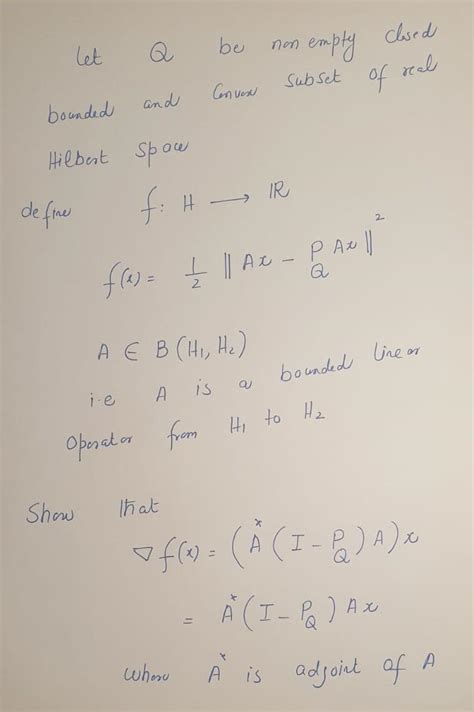 Let Q be non empty closed
bounded and Convex subset of real
Hilbert space
define f: H ⟶ ℝ
f(x) = 1/2 ‖Ax − P_Q Ax‖²
A ∈ B(H₁, H₂)
i.e A is a bounded linear
operator from H₁ to H₂
Show that
∇f(x) = (A*(I − P_Q)A)x
= A*(I − P_Q)Ax
where A* is adjoint of A